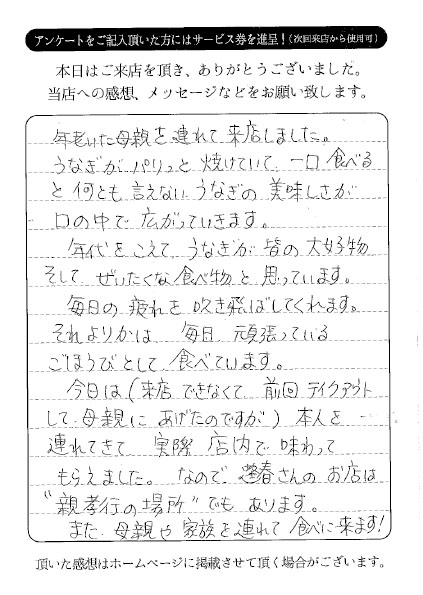 アンケートをご記入頂いた方にはサービス券を進呈！（次回来店から使用可）
本日はご来店を頂き、ありがとうございました。
当店への感想、メッセージなどをお願い致します。
年老いた母親を連れて来店しました。
うなぎがパリっと焼けていて、一口食べる
と何とも言えないうなぎの美味しさが
口の中で広がっていきます。
年代をこえてうなぎが皆の大好物
そしてぜいたくな食べ物と思っています。
毎日の疲れを吹き飛ばしてくれます。
それよりかは毎日、頑張っている
ごほうびとして食べています。
今日は（来店できなくて、前回テイクアウト
して母親にあげたのですが）本人を
連れてきて、実際店内で味わって
もらえました。なので、春さんのお店は
"親孝行の場所"でもあります。
また、母親や家族を連れて食べに来ます!
頂いた感想はホームページに掲載させて頂く場合がございます。